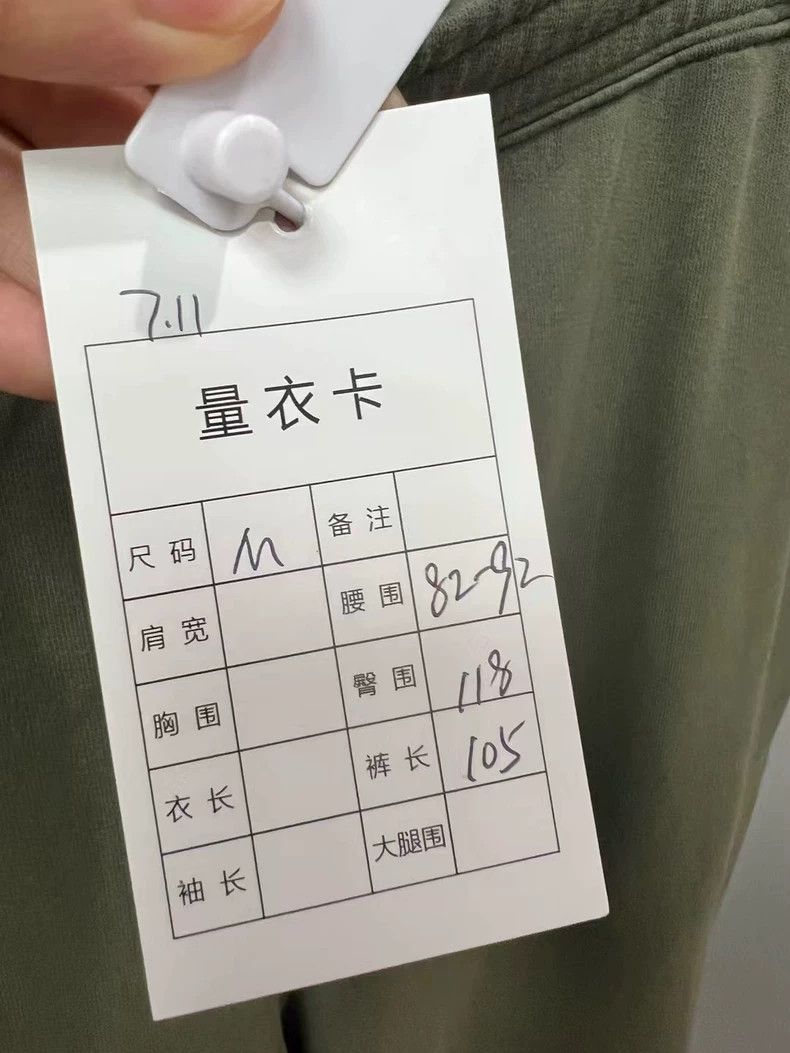 7.11
量衣卡
尺码 M 备注
肩宽 腰围 82-92
胸围 臀围 118
衣长 裤长 105
袖长 大腿围